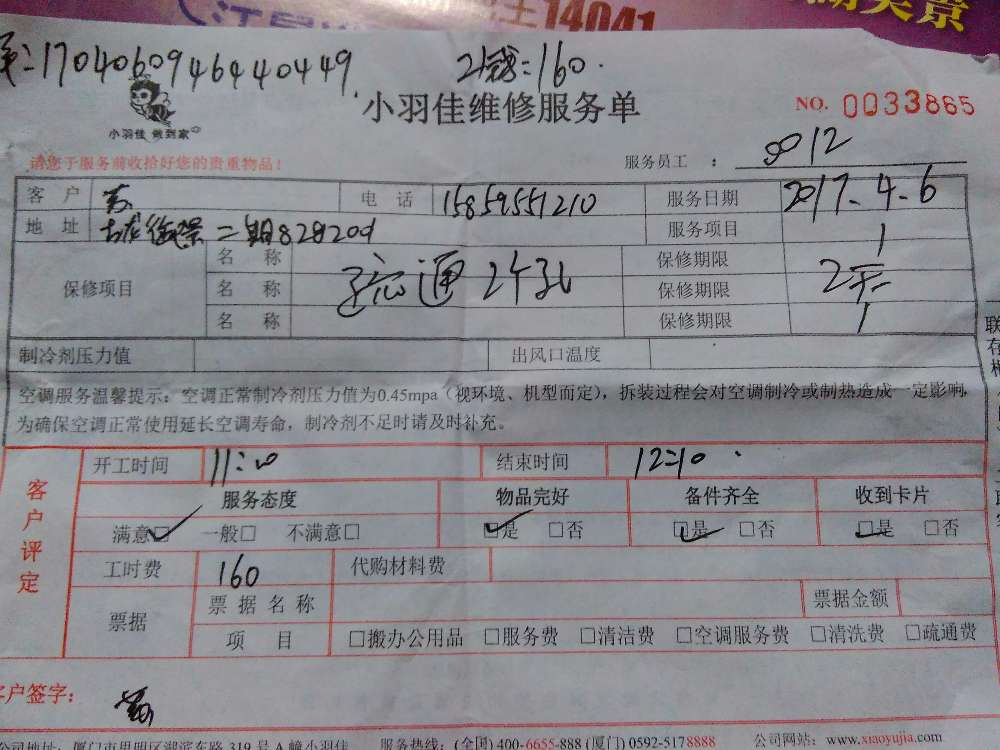 注14041
17040609464404449
金额:160.
小羽佳 做到家
小羽佳维修服务单
NO. 0033865
请您于服务前收拾好您的贵重物品!
服务员工 : 9012
客 户 电 话 15859551210 服务日期 2017.4.6
地 址 二期82号209 服务项目
保修项目
名 称 保修期限
名 称 疏通2个孔 保修期限 2天
名 称 保修期限
制冷剂压力值 出风口温度
空调服务温馨提示: 空调正常制冷剂压力值为0.45mpa(视环境、机型而定), 拆装过程会对空调制冷或制热造成一定影响,
为确保空调正常使用延长空调寿命, 制冷剂不足时请及时补充。
客户评定
开工时间 11:10 结束时间 12:10
服务态度 物品完好 备件齐全 收到卡片
满意□ 一般□ 不满意□ □是 □否 □是 □否 □是 □否
工时费 160 代购材料费
票据 票据名称 票据金额
项 目 □搬办公用品 □服务费 □清洁费 □空调服务费 □清洗费 □疏通费
客户签字:
公司地址: 厦门市思明区湖滨东路 319 号 A 幢小羽佳 服务热线: (全国) 400-6655-888 (厦门) 0592-5178888 公司网站: www.xiaoyujia.com